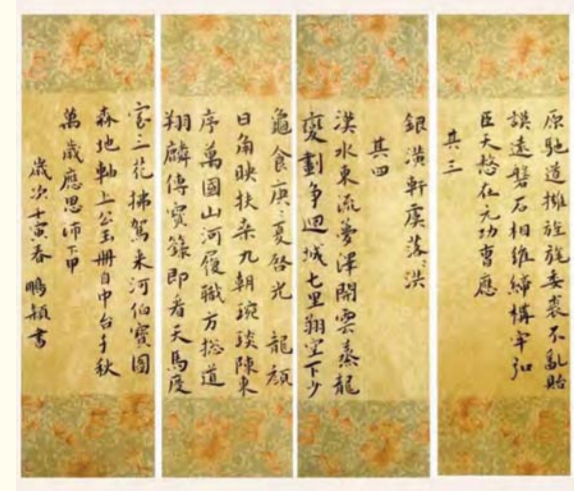 原馳道擁旌旄委裘不亂貽
謨遠磐石相維締構牢弘
臣天愁在元功曹應
其三
銀潢軒虞落洪
其四
漢水東流夢澤開雲蒸龍
變劃爭迴城七里翔空下少
龜食庚〻夏啓光 龍顏
日角映扶桑九朝琬琰陳東
序萬國山河履職方摠道
翔麟傳寶籙即看天馬度
室三花拂駕来河伯寶圖
森地軸上公玉冊自中台千秋
萬歲應思沛下甲
歲次壬寅春 鵬穎書